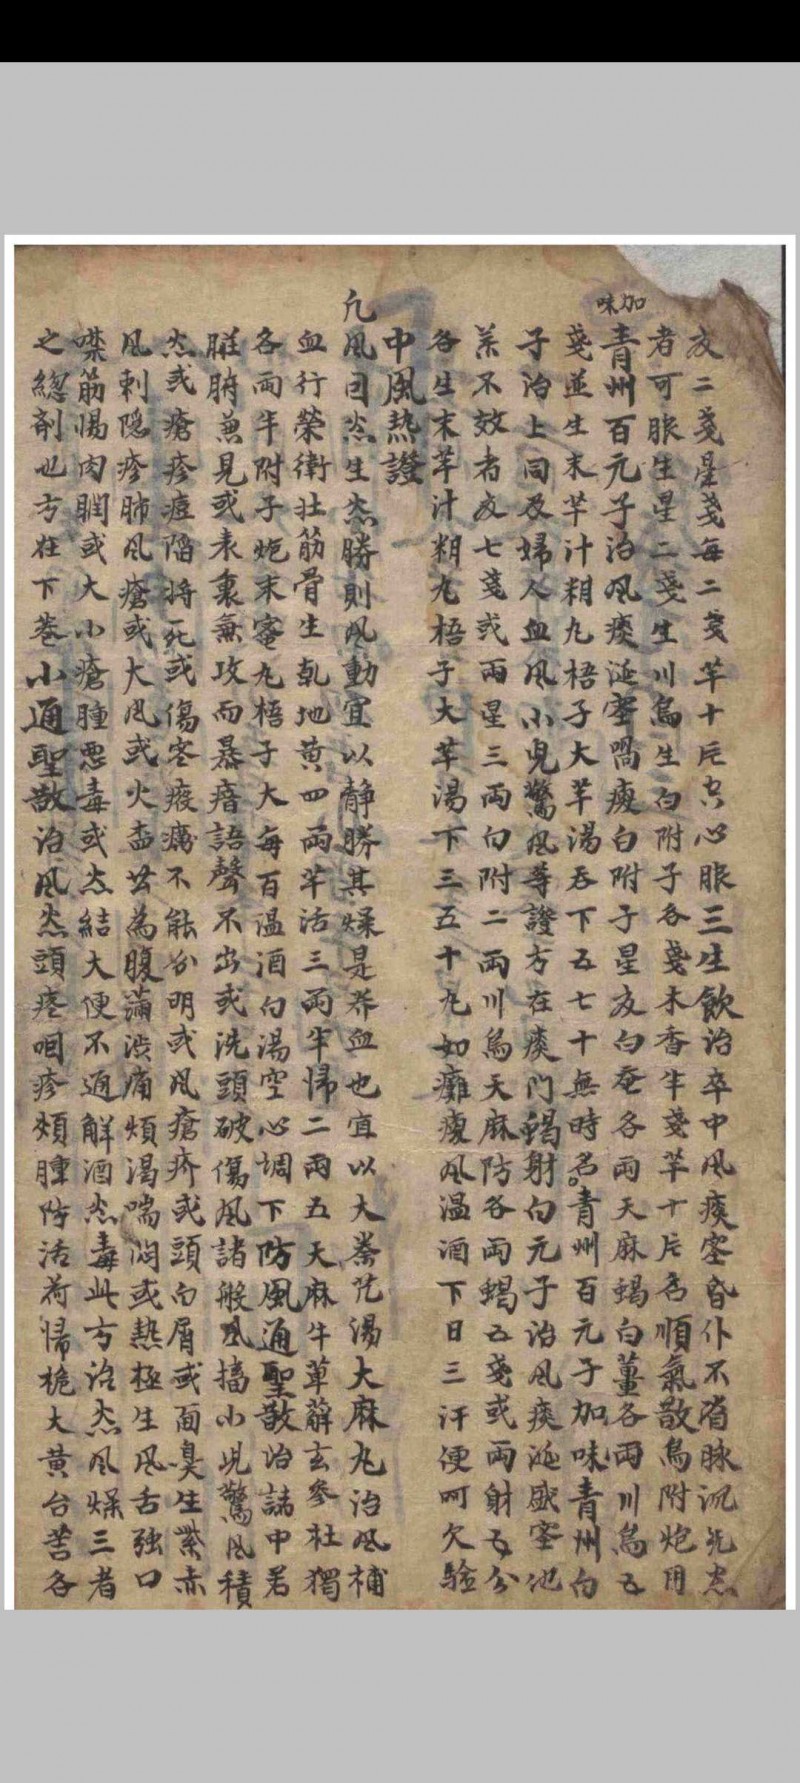 加味
夏二戔星戔每二戔芉十片空心服三生飲治卒中風痰塞昏仆不省脉沉无
者可服生星二戔生川烏生白附子各戔木香半戔芉十片名順氣散烏附炮用
青州百元子治風痰涎塞喎瘓白附子星夏白各両天麻蝎白薑各両川烏五
戔並生末芉汁糊丸梧子大芉湯吞下五七十無時名青州百元子加味青州白
子治上同及婦人血風小児驚風等證方在痰門蝎射白元子治風痰涎盛塞他
薬不效者夏七戔或両星三両白附二両川烏天麻防各両蝎五戔或両射五分
各生末芉汁糊丸梧子大芉湯下三五十丸如癱瘓風温酒下日三汗便呵欠驗
中風热證
凢風因生勝則風動宜以静勝其燥是养血也宜以大秦艽湯大麻丸治風補
血行榮衛壮筋骨生乹地黄四両羊活三両牛帰二両五天麻牛萆薢玄參杜獨
各両半附子炮末蜜丸梧子大每百温酒白湯空心調下防風通聖散治諸中若
臓腑兼見或表裏兼攻而暴瘖語聲不出或洗頭破傷風諸般風搐小児驚風積
或瘡疹痘陷将死或傷寒疫癘不能分明或風瘡疥或頭白屑或面臭生紫赤
風刺隐疹肺風瘡或大風或火盛為腹滿渋痛煩渴喘悶或熱極生風舌强口
噤筋惕肉瞤或大小瘡腫悪毒或結大便不通解酒毒此方治風燥三者
之緫剤也方在下巻小通聖散治風頭疼咽疹頰腫防活荷帰桅大黄台苦各